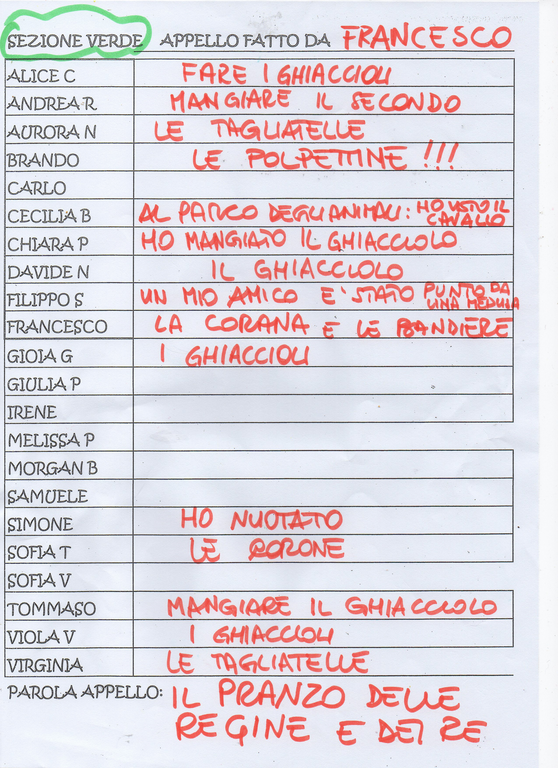 SEZIONE VERDE APPELLO FATTO DA FRANCESCO
ALICE C FARE I GHIACCIOLI
ANDREA R MANGIARE IL SECONDO
AURORA N LE TAGLIATELLE
BRANDO LE POLPETTINE !!!
CARLO
CECILIA B AL PARCO DEGLI ANIMALI: HO VISTO IL CAVALLO
CHIARA P HO MANGIATO IL GHIACCIOLO
DAVIDE N IL GHIACCIOLO
FILIPPO S UN MIO AMICO E' STATO PUNTO DA UNA MEDUSA
FRANCESCO LA CORANA E LE BANDIERE
GIOIA G I GHIACCIOLI
GIULIA P
IRENE
MELISSA P
MORGAN B
SAMUELE
SIMONE HO NUOTATO
SOFIA T LE CORONE
SOFIA V
TOMMASO MANGIARE IL GHIACCIOLO
VIOLA V I GHIACCIOLI
VIRGINIA LE TAGLIATELLE
PAROLA APPELLO: IL PRANZO DELLE
REGINE E DEI RE